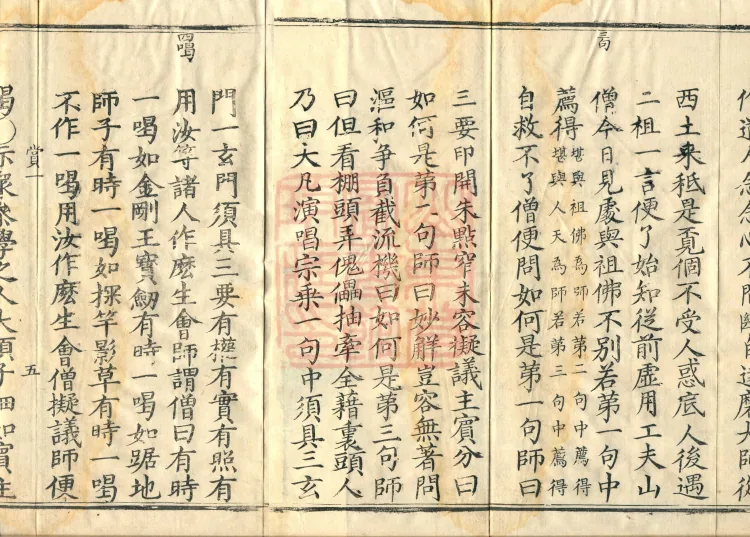 作道念心不間斷自達磨大師從
西土来秖是覔個不受人惑底人後遇
二祖一言便了始知從前虛用工夫山
僧今日見處與祖佛不別若第一句中
薦得堪與祖佛為師若第二句中薦得
堪與人天為師若第三句中薦得
自救不了僧便問如何是第一句師曰
三句
三要印開朱點窄未容擬議主賓分曰
如何是第二句師曰妙解豈容無著問
漚和争負截流機曰如何是第三句師
曰但看棚頭弄傀儡抽牽全藉裏頭人
乃曰大凡演唱宗乗一句中須具三玄
門一玄門須具三要有權有實有照有
四喝
用汝等諸人作麽生會師謂僧曰有時
一喝如金剛王寶劒有時一喝如踞地
師子有時一喝如探竿影草有時一喝
不作一喝用汝作麽生會僧擬議師便
賞一
五
喝○示衆叅學之人大須子細如賓主